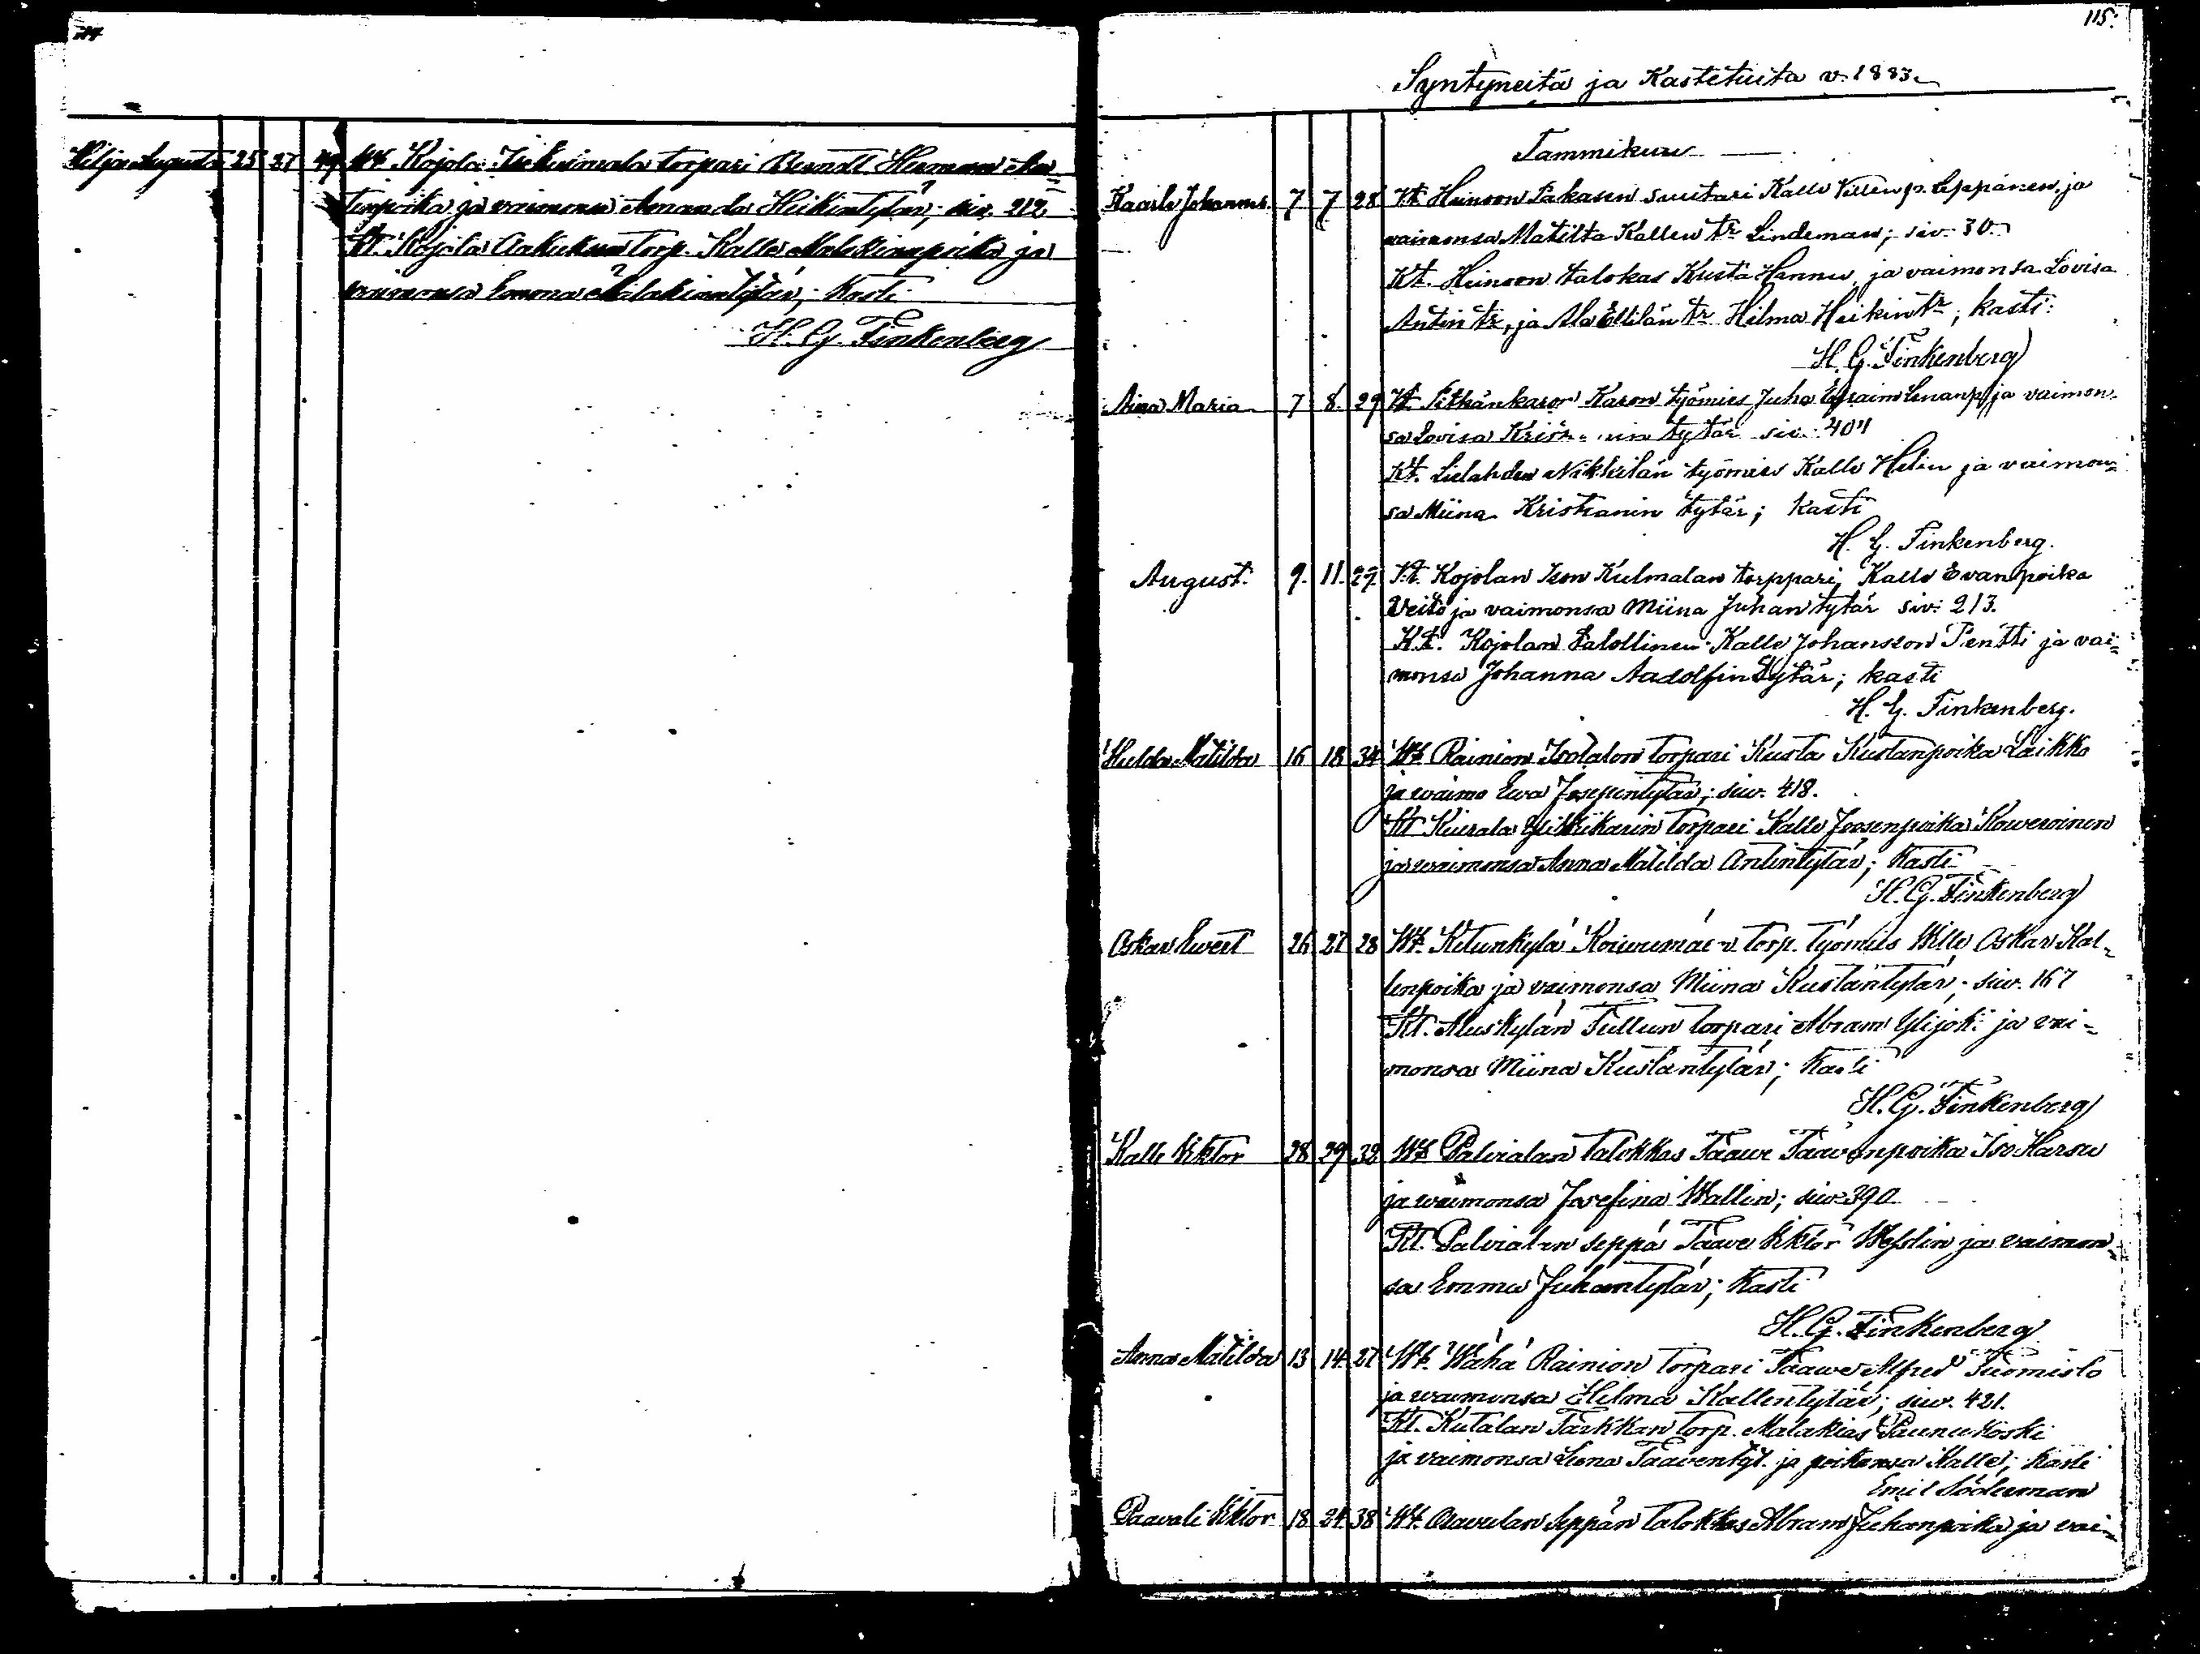 115.
Syntyneitä ja Kastetuita v. 1883.
Hilja Augusta 25 27 Wt. Kojola torpari Berndt Herman
tenpoika ja vaimonsa Amanda Heikintytär; siv. 212
Kt. Kojola torp. Kalle Malakianpoika ja
vaimonsa Emma Malakiantytär; Kasti
H. G. Finkenberg
Tammikuu
Kaarle Johannes 7 7 28 Vt. Heinoon suutari Kalle Villen p. Leppänen, ja
vaimonsa Matilta Kallen tr Lindeman; siv. 30
Kt. Heinoon talokas Kusta Hannu, ja vaimonsa Lovisa
Antin tr, ja Ala Ellilän tr Hilma Heikin tr; kasti:
H. G. Finkenberg
Aina Maria 7 8. 29 Vt. Karon työmies Juha ja vaimon-
sa Lovisa tytär siv. 404
Kt. Lielahden Nikkilän työmies Kalle Helin ja vaimon-
sa Miina Kristianin tytär; kasti
H. G. Finkenberg.
August. 9. 11. 27. Vt. Kojolan Ison Kulmalan torppari, Kalle Evanpoika
Veito ja vaimonsa Miina Juhan tytär siv: 213.
Kt. Kojolan Kalle Johansson Pentti ja vai-
monsa Johanna Aadolfin tytär; kasti
H. G. Finkenberg.
Hulda Matilda 16 18 34 Wt. Rainion Isotalon torpari Kusta Kustanpoika Laikko
ja waimo Ewa Josepintytär; siw. 418.
Kt. torpari Kalle Joosenpoika
ja waimonsa Anna Matilda Antintytär; Kasti
H. G. Finkenberg
Oskar Ewert 26 27 28 Wt. Ketunkylä torp. työmies Wille Oskar Kal-
lenpoika ja vaimonsa Miina Kustantytär; siw. 167
Kt. Aluskylän Tullun torpari Abram Ylijoki ja vai-
monsa Miina Kustantytär; Kasti
H. G. Finkenberg
Kalle Viktor 28 29 32 Wt. Palvialan talokkas Taawe Taawenpoika Iso Harsu
ja waimonsa Josefina Wallin; siw. 390
Kt. Palvialan seppä Taave Viktor Wesslin ja vaimon-
sa Emma Juhantytär; Kasti
H. G. Finkenberg
Anna Matilda 13 14 27 Wt. Wähä Rainion torpari Taawe Alfred Tuomisto
ja waimonsa Helma Kallentytär; siw. 421.
Kt. Kutalan Tarkkan torp. Malakias Paunukoski
ja vaimonsa Leena Taaventyt. ja poikansa Kalle; Kasti
Emil Söderman
Paavali Viktor 18 24 38 Wt. Seppän talokkas Abram Juhanpoika ja vai-